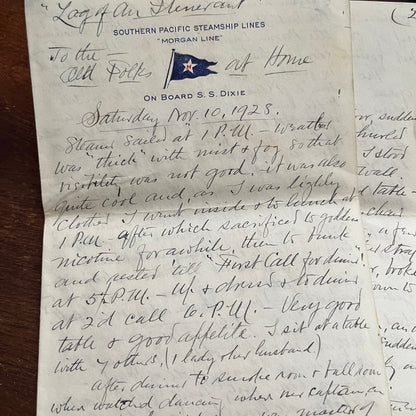 "Log of An Itinerant"
SOUTHERN PACIFIC STEAMSHIP LINES
"MORGAN LINE"
To the
Old Folks at Home
ON BOARD S. S. DIXIE
Saturday Nov. 10, 1928.
Steamer Sailed at 1 P.M. – Weather
was "thick" with mist & fog so that
visibility was not good. it was also
quite cool and as I was lightly
Clothed I went inside & to lunch at
1 P.M. after which sacrificed to goddess
nicotine for awhile, then to bunk
and rested till "First Call for dinner"
at 5 P.M. – Up & dressed & to dinner
at 2'd call 6. P.M. – Very good
table & good appetite. I sit at a table
with 7 others. (1 lady & her husband)
after dinner to smoke room & ball room
when watched dancing when our captain
was master of
(2
sudden
hurled
I stood
wall.
nd table
chair
strap
broke
own to